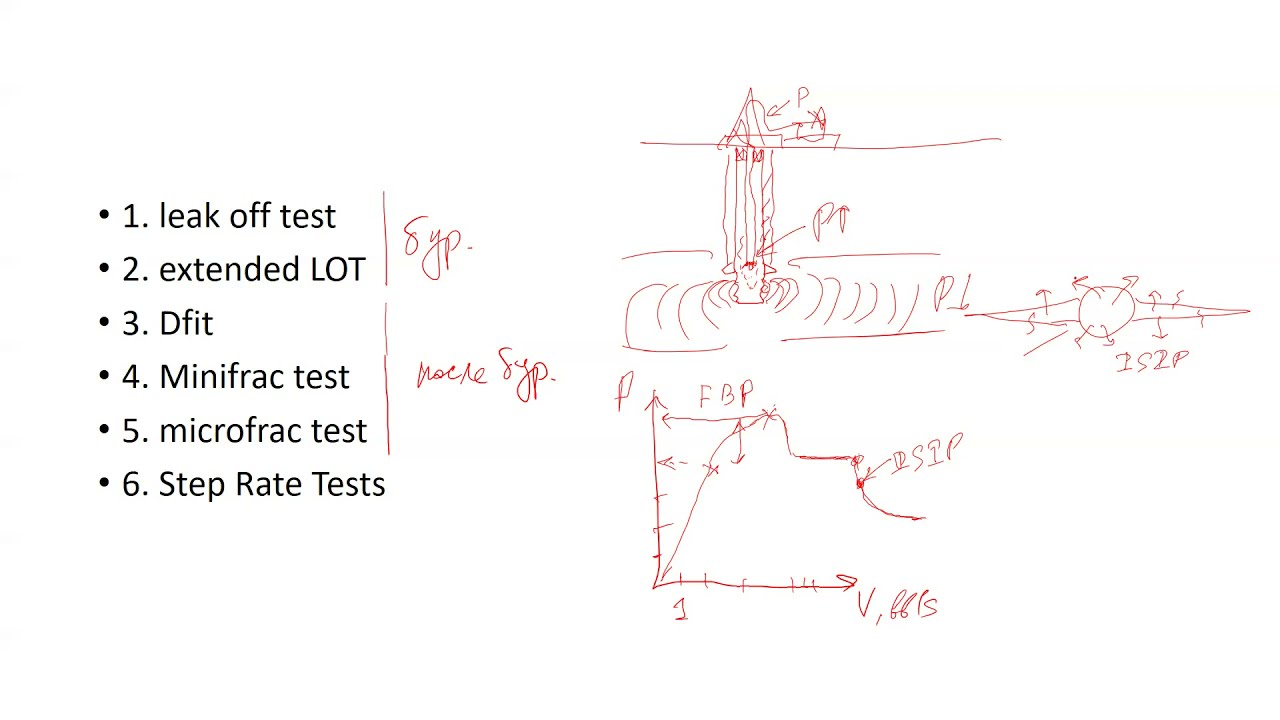 • 1. leak off test
• 2. extended LOT
• 3. Dfit
• 4. Minifrac test
• 5. microfrac test
• 6. Step Rate Tests
бур.
после бур.
P
ISIP
P
FBP
ISIP
1
V, bbls